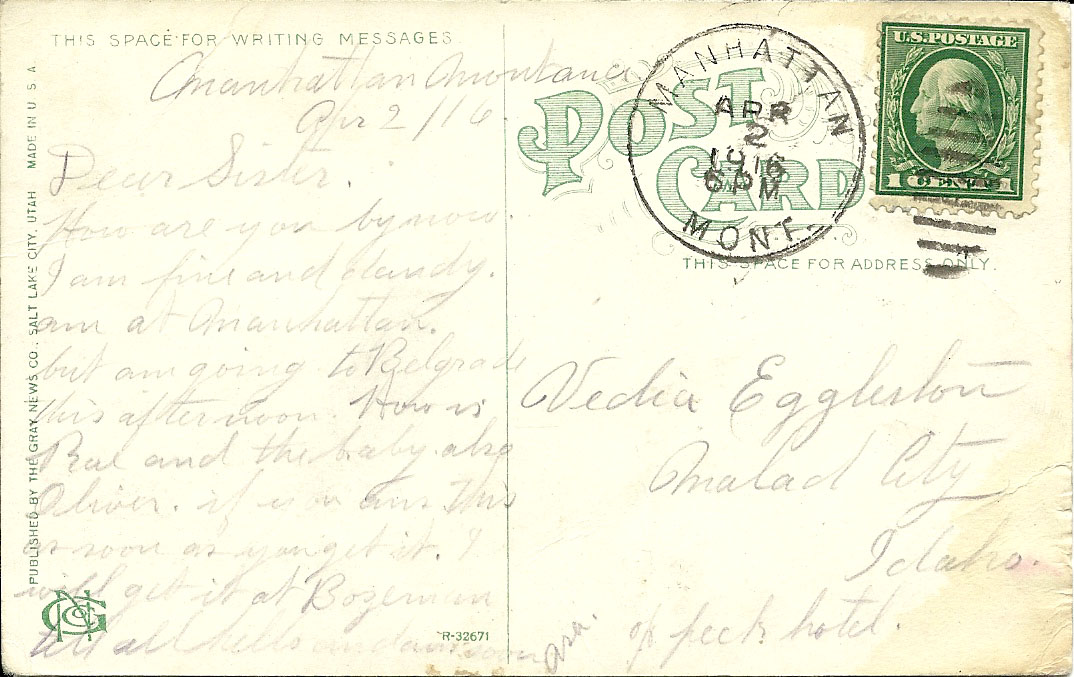 THIS SPACE FOR WRITING MESSAGES
Manhattan Montana
Apr 2/16
Dear Sister.
How are you by now
I am fine and dandy.
am at Manhattan.
but am going to Belgrade
this afternoon. How is
and the baby also
Oliver. if you ans this
as soon as you get it. I
will get it at Bozeman
tell all hello and
Asa.
PUBLISHED BY THE GRAY NEWS CO., SALT LAKE CITY, UTAH MADE IN U S A
GNCo
R-32671
POST CARD
MANHATTAN
APR
2
1916
6 PM
MONT.
U.S. POSTAGE
1 CENT 1
THIS SPACE FOR ADDRESS ONLY.
Vedia Eggleston
Malad City
Idaho.
peck hotel.